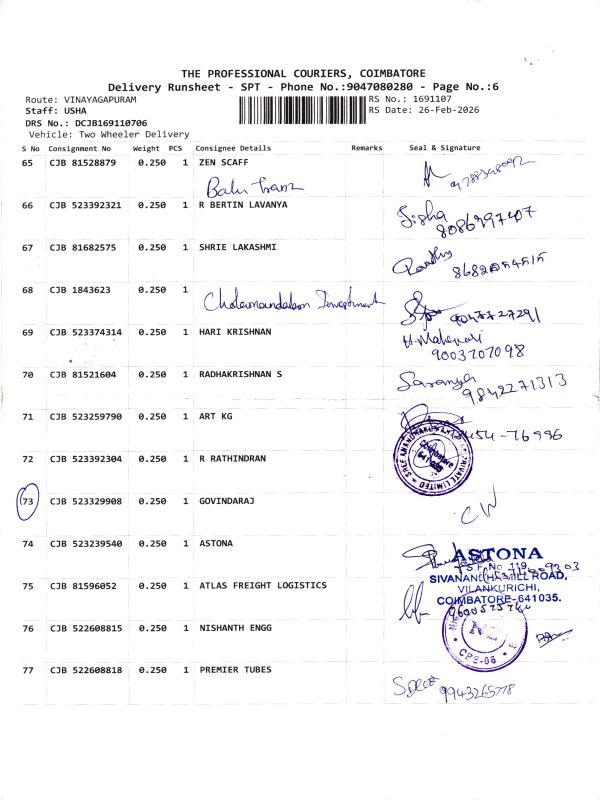 THE PROFESSIONAL COURIERS, COIMBATORE
Delivery Runsheet - SPT - Phone No.:9047080280 - Page No.:6
Route: VINAYAGAPURAM
Staff: USHA
DRS No.: DCJB169110706
Vehicle: Two Wheeler Delivery
RS No.: 1691107
RS Date: 26-Feb-2026
S No Consignment No Weight PCS Consignee Details Remarks Seal & Signature
65 CJB 81528879 0.250 1 ZEN SCAFF
66 CJB 523392321 0.250 1 R BERTIN LAVANYA
Jisha
67 CJB 81682575 0.250 1 SHRIE LAKASHMI
68 CJB 1843623 0.250 1
Cholamandalam Investment
69 CJB 523374314 0.250 1 HARI KRISHNAN
9003707098
70 CJB 81521604 0.250 1 RADHAKRISHNAN S
Saranya
9842271313
71 CJB 523259790 0.250 1 ART KG
72 CJB 523392304 0.250 1 R RATHINDRAN
PRIVATE LIMITED
73 CJB 523329908 0.250 1 GOVINDARAJ
74 CJB 523239540 0.250 1 ASTONA
ASTONA
S.F. No. 119,
MILL ROAD,
VILANKURICHI,
COIMBATORE-641035.
75 CJB 81596052 1 ATLAS FREIGHT LOGISTICS
76 CJB 522608815 0.250 1 NISHANTH ENGG
CPE-06
77 CJB 522608818 0.250 1 PREMIER TUBES